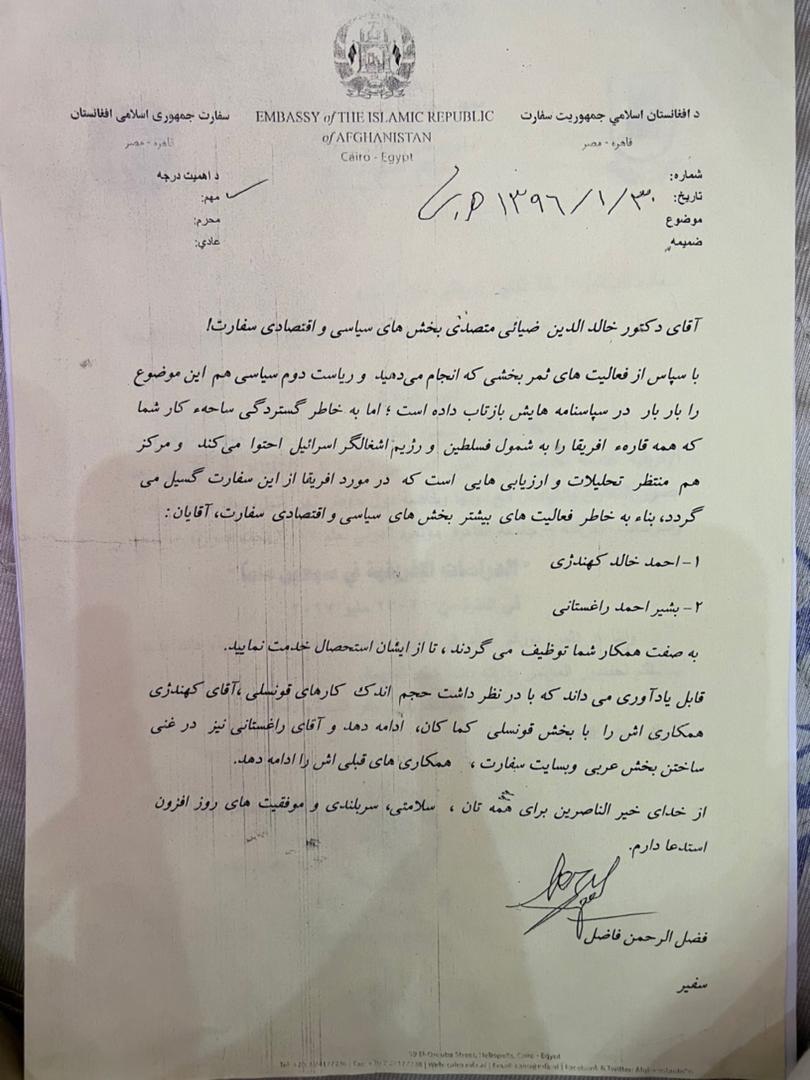 د افغانستان اسلامي جمهوریت سفارت
قاهره - مصر
EMBASSY of THE ISLAMIC REPUBLIC
of AFGHANISTAN
Cairo - Egypt
سفارت جمهوری اسلامی افغانستان
قاهره - مصر
شماره:
تاریخ: ۱۳۹۶/۱/۳۰
موضوع
ضمیمه
د اهمیت درجه
مهم:
محرم:
عادي:
آقای دکتور خالد الدین ضیائی متصدی بخش های سیاسی و اقتصادی سفارت!
با سپاس از فعالیت های ثمر بخشی که انجام می‌دهید و ریاست دوم سیاسی هم این موضوع
را بار بار در سپاسنامه هایش بازتاب داده است ؛ اما به خاطر گستردگی ساحهء کار شما
که همه قارهء افریقا را به شمول فسلطین و رژیم اشغالگر اسرائیل احتوا می‌کند و مرکز
هم منتظر تحلیلات و ارزیابی هایی است که در مورد افریقا از این سفارت گسیل می
گردد، بناء به خاطر فعالیت های بیشتر بخش های سیاسی و اقتصادی سفارت، آقایان :
۱- احمد خالد کهندژی
۲- بشیر احمد راغستانی
به صفت همکار شما توظیف می گردند ، تا از ایشان استحصال خدمت نمایید.
قابل یادآوری می داند که با در نظر داشت حجم اندک کارهای قونسلی ،آقای کهندژی
همکاری اش را با بخش قونسلی کما کان، ادامه دهد و آقای راغستانی نیز در غنی
ساختن بخش عربی وبسایت سفارت ، همکاری های قبلی اش را ادامه دهد.
از خدای خیر الناصرین برای همه تان ، سلامتی، سربلندی و موفقیت های روز افزون
استدعا دارم.
فضل الرحمن فاضل
سفیر
Street, Heliopolis, Cairo - Egypt